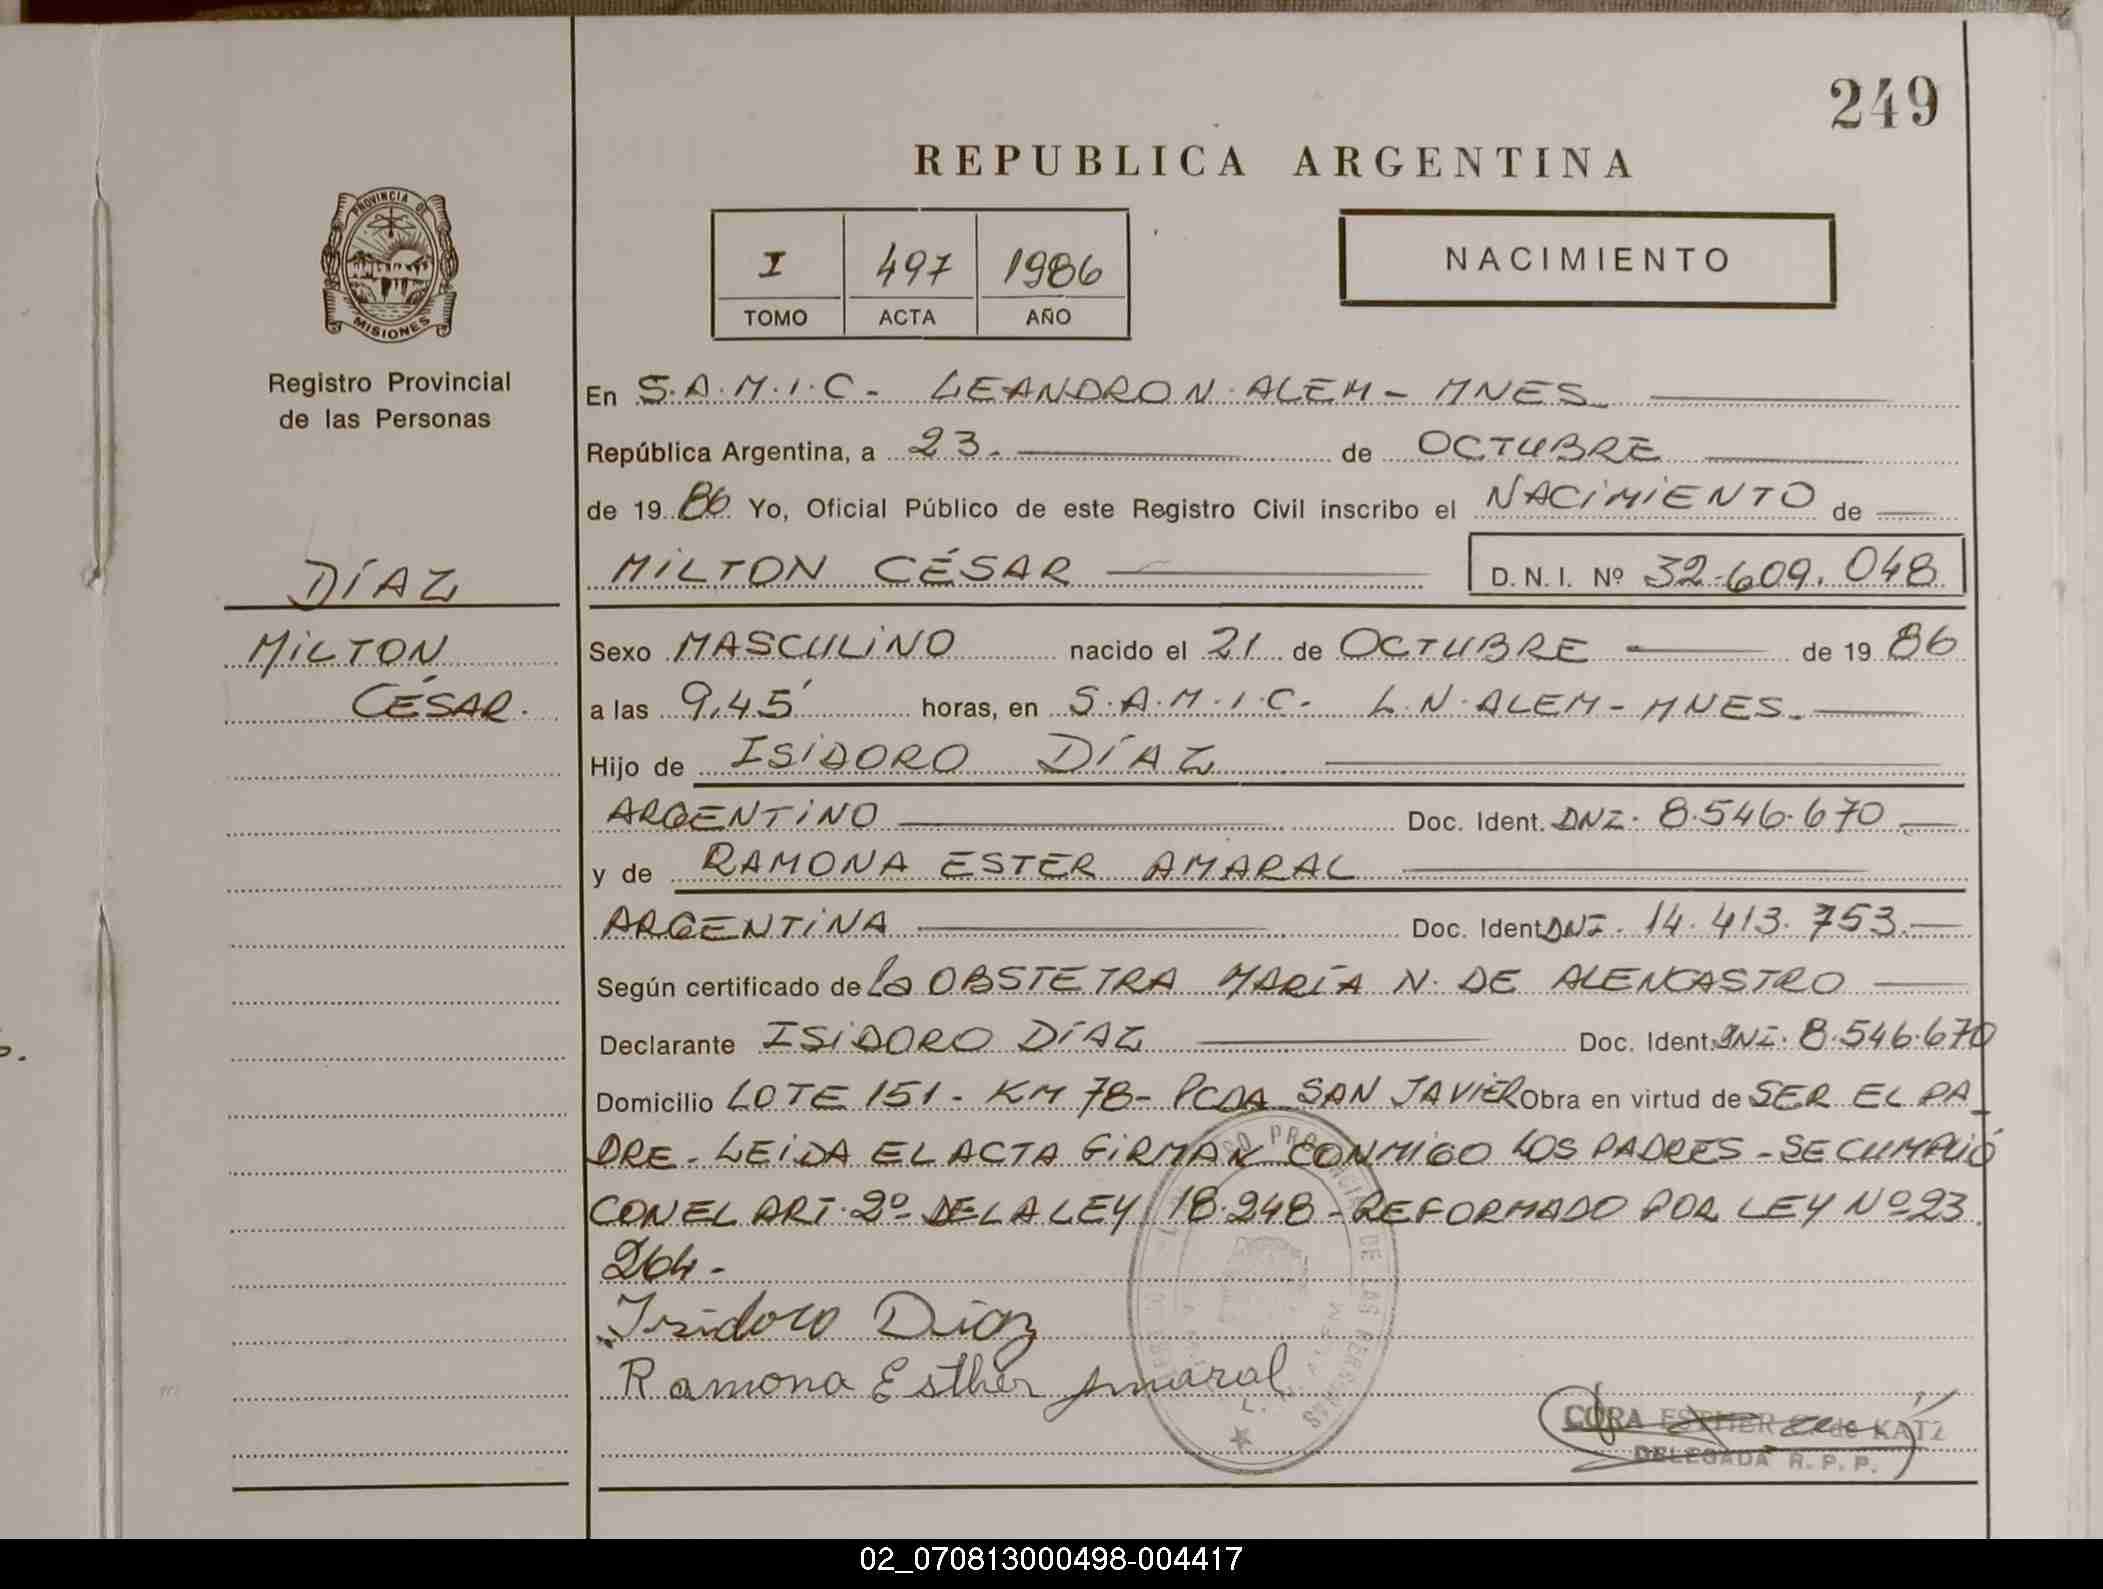 249
REPUBLICA ARGENTINA
PROVINCIA DE
MISIONES
I 497 1986
TOMO ACTA AÑO
NACIMIENTO
Registro Provincial
de las Personas
DÍAZ
MILTON
CÉSAR.
En S.A.M.I.C- LEANDRO N. ALEM - MNES
República Argentina, a 23. de OCTUBRE
de 1986 Yo, Oficial Público de este Registro Civil inscribo el NACIMIENTO de
MILTON CÉSAR D. N. I. Nº 32.609.048
Sexo MASCULINO nacido el 21 de OCTUBRE de 1986
a las 9,45' horas, en S.A.M.I.C. L.N. ALEM - MNES.
Hijo de ISIDORO DÍAZ
ARGENTINO Doc. Ident. DNI. 8.546.670
y de RAMONA ESTER AMARAL
ARGENTINA Doc. Ident. DNI. 14.413.753.
Según certificado de la OBSTETRA MARÍA N. DE ALENCASTRO
Declarante ISIDORO DÍAZ Doc. Ident. DNI. 8.546.670
Domicilio LOTE 151 - KM 78 - PCDA SAN JAVIER Obra en virtud de SER EL PA
DRE. LEIDA EL ACTA FIRMAN CONMIGO LOS PADRES - SE CUMPLIÓ
CON EL ART. 2º DE LA LEY 18.248 - REFORMADO POR LEY Nº 23.
264 -
Isidoro Diaz
Ramona Esther Amaral
CORA ESTHER de KATZ
DELEGADA R. P. P.
02_070813000498-004417